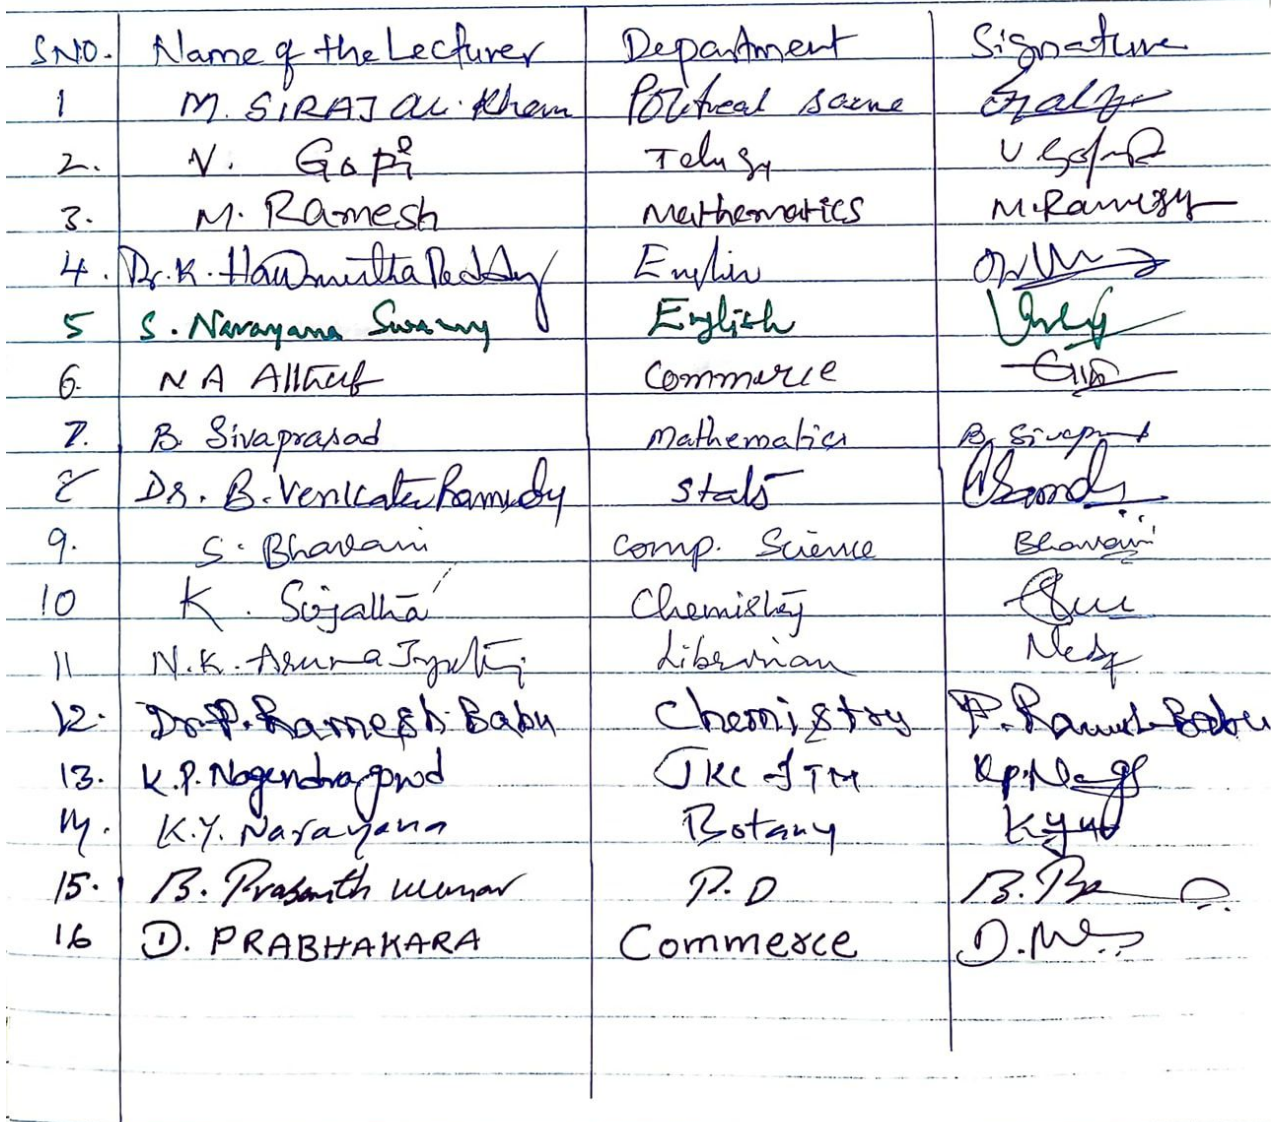 S.NO. Name of the Lecturer Department Signature
1 M. SIRAJ ALI Khan Political
2. V. Gopi Telugu V Gopi
3. M. Ramesh Mathematics M. Ramesh
4. Dr. K. Reddy
5 S. Narayana Swamy English
6. N A Althaf Commerce
7. B. Sivaprasad Mathematics B. Sivaprasad
8 Dr. B. Venkata Ramudy Stats
9. S. Bhavani Comp. Science Bhavani
10 K. Sujatha Chemistry
11 N.K. Aruna Jyothi Librarian
12. Dr. P. Ramesh Babu Chemistry P. Ramesh Babu
13. K.P. Nagendra gowd JKC
14. K.Y. Narayana Botany
15. B. Prasanth kumar P.D
16 D. PRABHAKARA Commerce